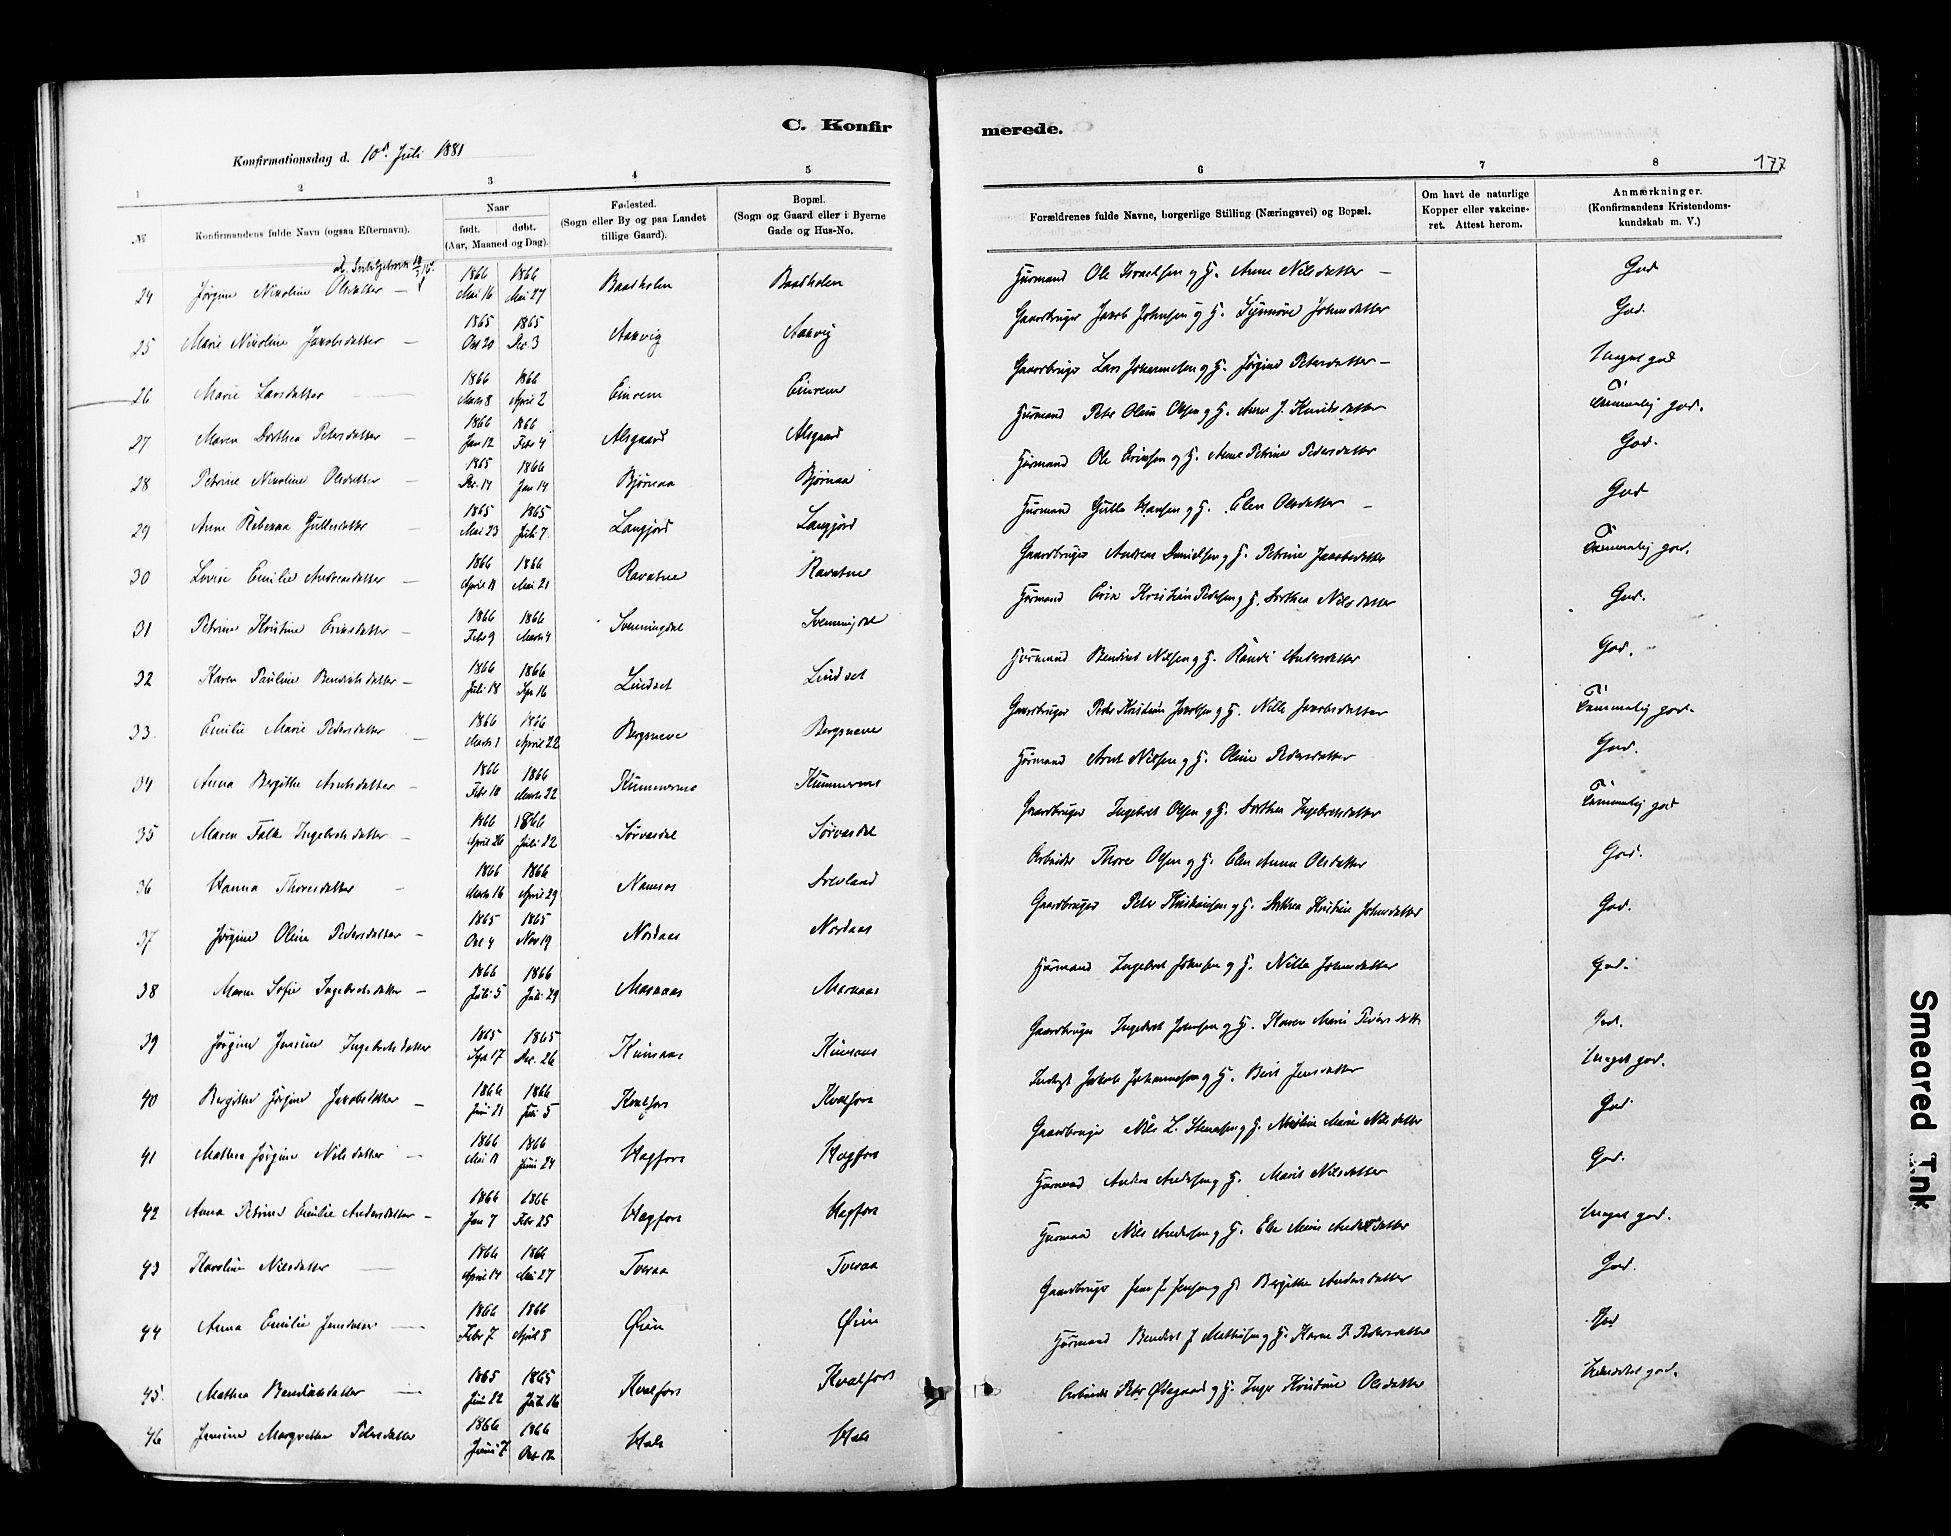 C. Konfir
merede.
Konfirmationsdag d. 10de Juli 1881
177
1 2 3 4 5 6 7 8
№ Konfirmandens fulde Navn (ogsaa Efternavn). Naar født. døbt. (Aar, Maaned og Dag). Fødested. (Sogn eller By og paa Landet tillige Gaard). Bopæl. (Sogn og Gaard eller i Byerne Gade og Hus-No. Forældrenes fulde Navne, borgerlige Stilling (Næringsvei) og Bopæl. Om havt de naturlige Kopper eller vakcineret. Attest herom. Anmærkninger. (Konfirmandens Kristendomskundskab m. V.)
24 Jørgine Nikoline Olsdatter 1866 Mai 16 1866 Mai 27 Baadholm Baadholm Husmand Ole g H. Anne Nilsdatter God
25 Marie Nikoline Jakobsdatter 1865 Oct 20 1865 Dec. 3 Aakvig Aakvig Gaardbruger Jakob Johnsen g H. Synnøve Johnsdatter God.
26 Marie Larsdatter 1866 Marts 8 1866 April 2 Einrem Einrem Gaardbruger Lars Johannesen g H. Jørgine Petersdatter Meget god
27 Maren Dorthea Petersdatter 1866 Jan 12 1866 Febr 4 Alsgaard Alsgaard Husmand Peter Olsen g H. Anne J. Knudsdatter Temmelig god.
28 Petrine Nikoline Olsdatter 1865 Dec. 14 1866 Jan 14 Bjørnaa Bjørnaa Husmand Ole Eriksen g H. Anne Petrine Pedersdatter God.
29 Anne Rebekka Gullesdatter 1865 Mai 23 1865 Juli 7 Langjord Langjord Husmand Gulle Hansen g H. Elen Olsdatter God
30 Lovise Emilie Andreasdatter 1866 April 1866 Mai 21 Ravatne Ravatne Gaardbruger Andreas Danielsen g H. Petrine Jakobsdatter Temmelig god.
31 Petrine Kristine Eriksdatter 1866 Febr 9 1866 Marts 4 Svenningdal Svenningdal Husmand Erik Kristian Pedersen g H. Dorthea Nilsdatter God.
32 Karen Pauline Bendiksdatter 1866 Juli 18 1866 Sept 16 Lindset Lindset Husmand Bendik Nilsen g H. Randi Andersdatter God.
33 Emilie Marie Pedersdatter 1866 Marts 1 1866 April 22 Bergsneve Bergsneve Gaardbruger Peder Kristian Jakobsen g H. Nille Jakobsdatter Temmelig god.
34 Anna Bergitte Arntsdatter 1866 Febr 18 1866 Marts 22 Kummermo Kummermo Husmand Arnt Nilsen g H. Oline Pedersdatter God.
35 Maren Falk Ingebretsdatter 1866 April 26 1866 Juli 22 Sørvasdal Sørvasdal Gaardbruger Ingebret Olsen g H. Dorthea Ingebretsdatter Temmelig god
36 Hanna Thoresdatter 1866 Marts 16 1866 April 29 Namsos Arbeider Thore Olsen g H. Elen Anna Olsdatter God.
37 Jørgine Oline Pedersdatter 1865 Oct 4 1865 Nov 19 Nordaas Nordaas Gaardbruger Peter Kristiansen g H. Dorthea Kristine Johnsdatter God.
38 Maren Sofie Ingebretsdatter 1866 Juli 5 1866 Juli 29 Marnaas Marnaas Husmand Ingebret Johnsen g H. Nille Johnsdatter God.
39 Jørgine Jensine Ingebretsdatter 1865 Sept 17 1865 Dec. 26 Gaardbruger Ingebret Johnsen g H. Karen Marie Pedersdatter God.
40 Bergitte Jørgine Jakobsdatter 1866 Juni 21 1866 Juli 5 Kvalfors Kvalfors Inderst Jakob Johannesen g H. Berit Jensdatter Meget god.
41 Mathea Jørgine Nilsdatter 1866 Mai 1866 Juni 24 Hagfors Hagfors Gaardbruger Nils L. Stensen g H. Marie Nilsdatter God
42 Anna Petrine Emilie Andersdatter 1866 Jan 7 1866 Febr 25 Hagfors Hagfors Husmand Anders Andersen g H. Marit Nilsdatter God.
43 Karoline Nilsdatter 1866 April 14 1866 Mai 27 Tveraa Tveraa Husmand Nils Andersen g H. Else Marie Andersdatter Meget god.
44 Anna Emilie Jensdatter 1866 Febr 7 1866 April 8 Øien Øien Gaardbruger Jens J. Jensen g H. Bergitte Andersdatter God.
45. Mathea Bendiksdatter 1865 Juni 22 1865 Juli 16 Kvalfors Kvalfors Husmand Bendik J Mathisen g H. Karen P. Pedersdatter God
46 Jensine Margrethe Petersdatter 1866 Juni 7 1866 Oct 12 Hals Hals Arbeider Peter Ødegaard g H. Inger Kristine Olsdatter god.
Smeared Ink